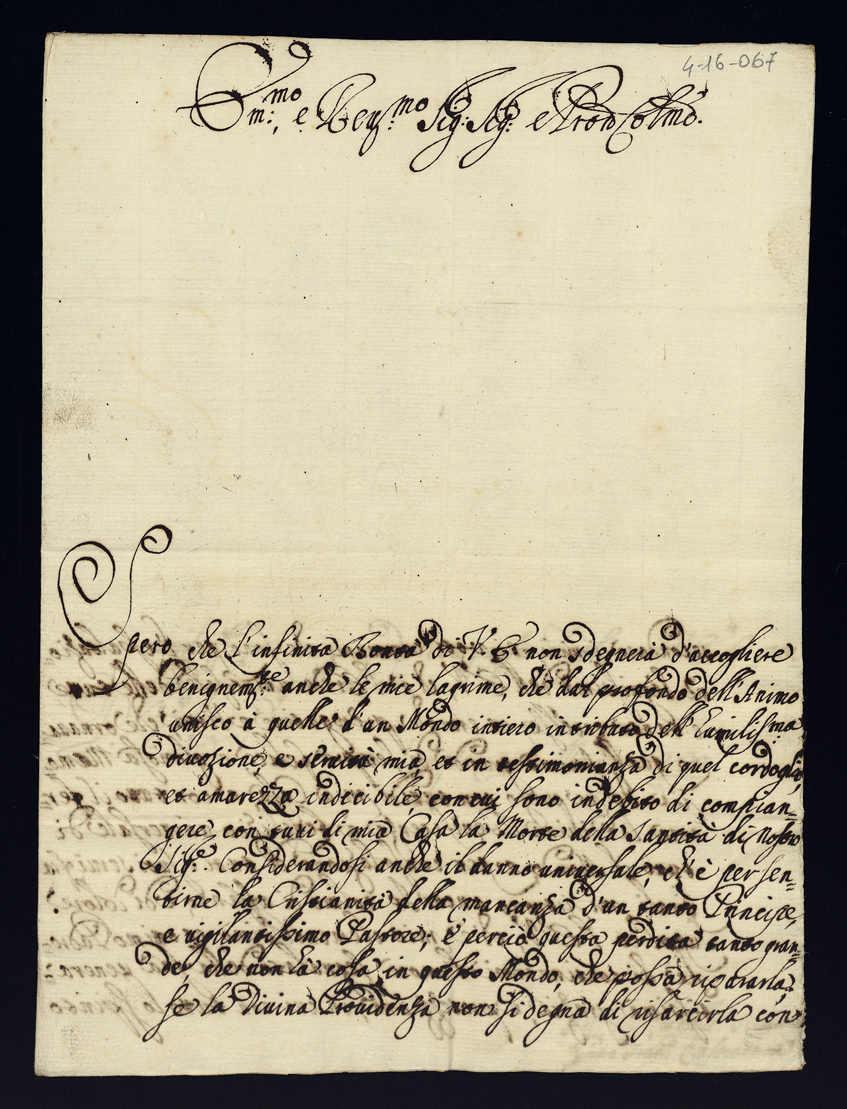 4-16-067
Em.mo e Reu.mo Sig: Sig: e Pron Colmo.
Spero che L'infinita Bontà di V. E. non sdegnerà d'accogliere
benignem.te anche le mie lagrime, che dal profondo dell'Animo
unisco à quelle d'un Mondo intiero in tributo dell'Humilis.ma
divozione, e servitù mia et in testimonianza di quel cordoglio,
et amarezza indicibile con cui sono in debito di compian=
gere con tutti di mia Casa la Morte della Santità di Nostro
Sig.re Considerandosi anche il danno universale, ch'è per sen=
tirne la Cristianità della mancanza d'un tanto Principe,
e vigilantissimo Pastore; e perciò questa perdita tanto gran=
de, che non hà cosa in questo Mondo, che possa ripararla,
se la Divina Providenza non si degna di risarcirla con